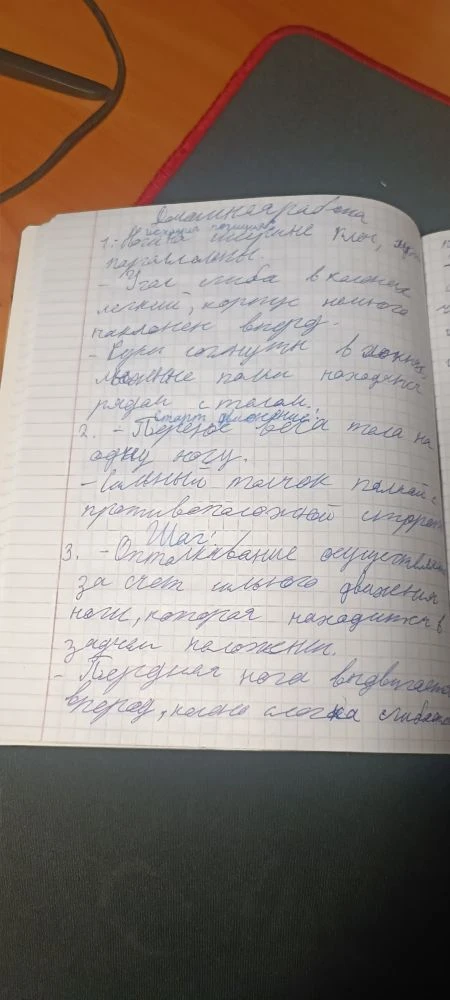 Домашняя работа
Исходная позиция
1. - Ноги на ширине плеч,
параллельны.
- Угол сгиба в коленях
легкий, корпус немного
наклонен вперед.
- Руки согнуты в локтях,
лыжные палки находятся
рядом с телом.
Старт движения:
2. - Перенос веса тела на
одну ногу.
- Сильный толчок палкой с
противоположной стороны
Шаг:
3. - Отталкивание осуществля
за счет сильного движения
ноги, которая находится в
заднем положении.
- Передняя нога выдвигает
вперед, колено слегка сгибает